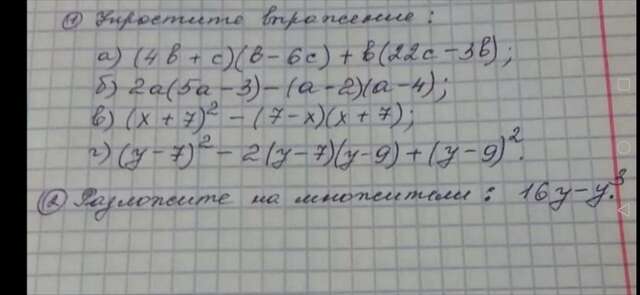 ① Упростите выражение:
а) (4в + с)(в – 6с) + в(22с – 3в);
б) 2а(5а – 3) – (а – 2)(а – 4);
в) (x + 7)² – (7 – x)(x + 7);
г) (y – 7)² – 2(y – 7)(y – 9) + (y – 9)².
② Разложите на множители: 16y – y³.